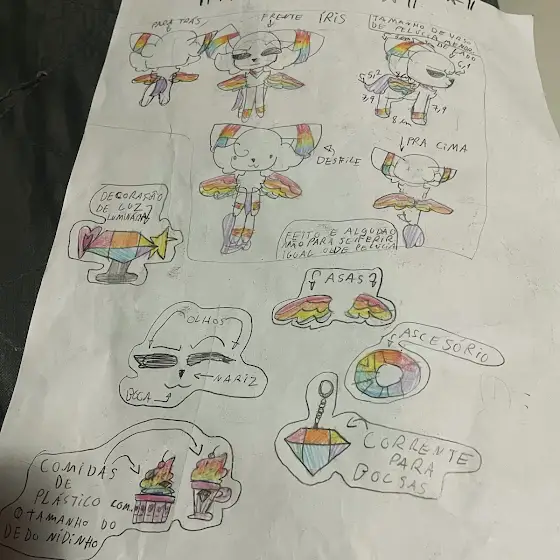 PARA TRÁS
FRENTE
ÍRIS
TAMANHO DE
DE PELÚCIA
5,2
7,9
8 cm
7,9
DESFILE
PRA CIMA
DECORAÇÃO
DE LUZ
LUMINADA
FEITO E ALGUDÃO
NÃO PARA SE FERIR
IGUAL
DE PELUCIA
ASAS
OLHOS
NARIZ
BOCA
ASCESORIO
CORRENTE
PARA
BOLSAS
COMIDAS
DE
PLÁSTICO COM
O TAMANHO DO
DEDO